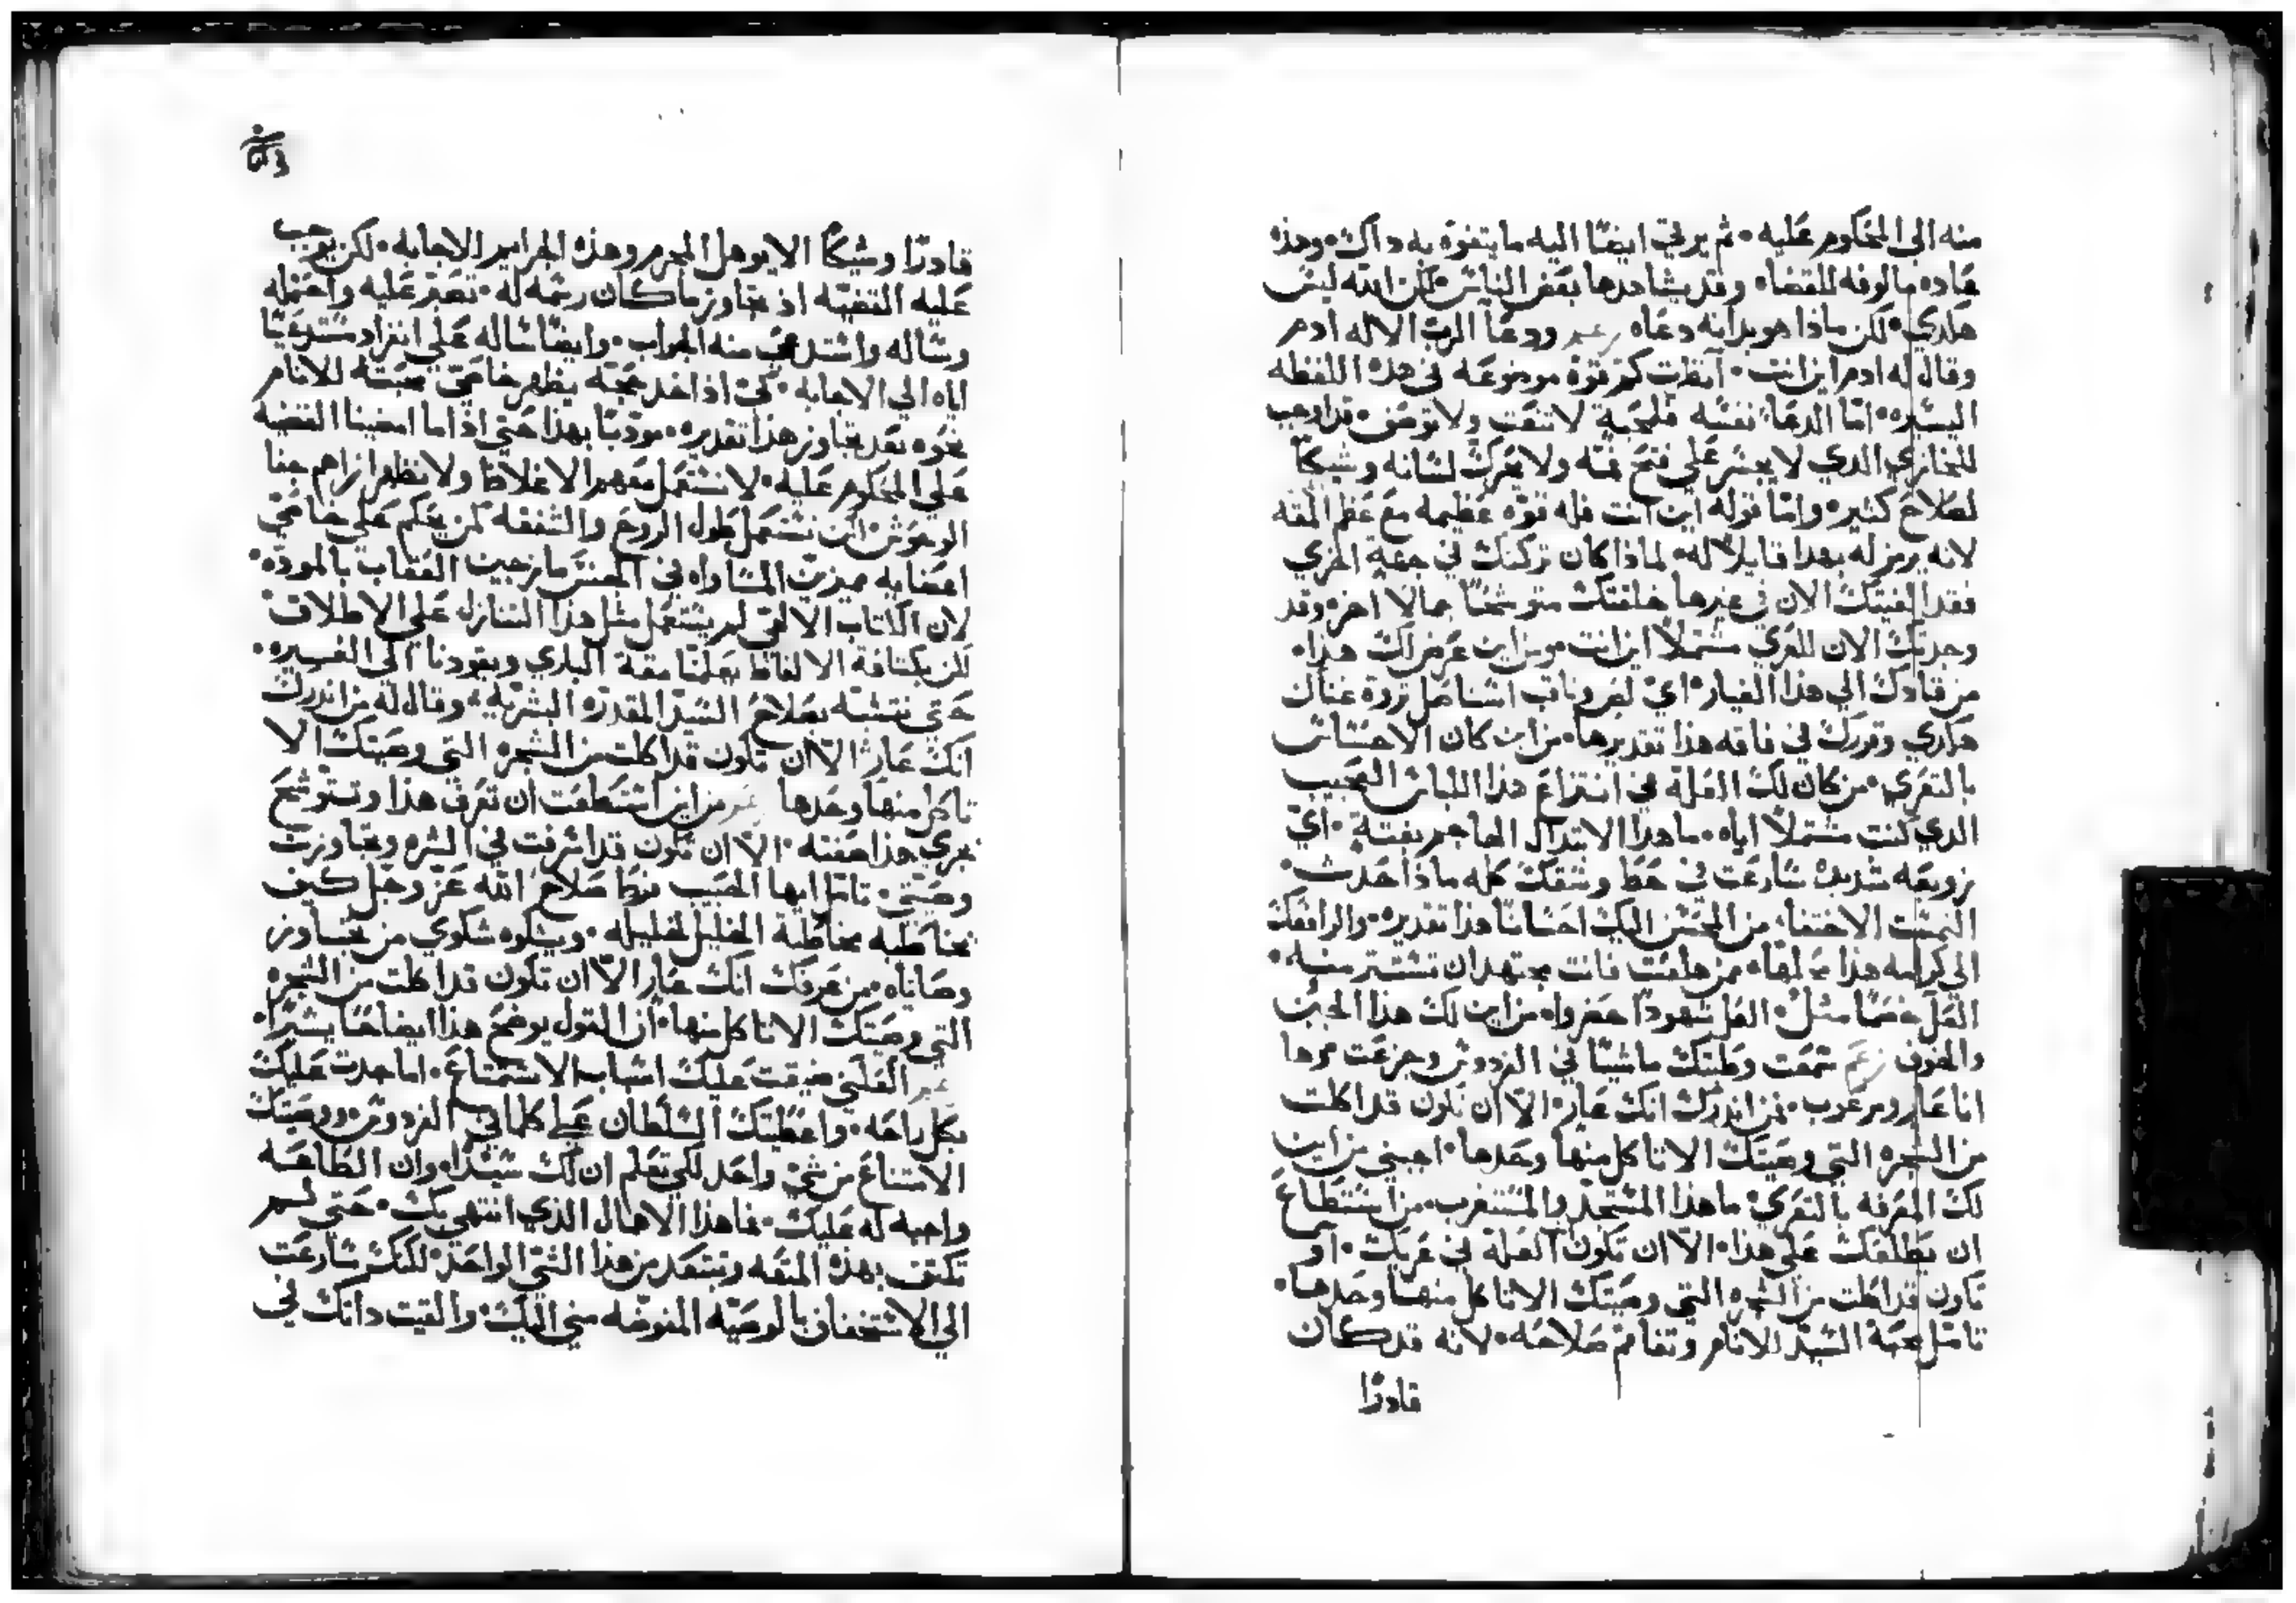 منه الى المحكوم عليه • ثم يرقى ايضًا اليه ما يتفوه به داك • وهذه
عاده مالوفه للقضا • وقد يشاهدها بعض الناس لكن الله ليس
هكدي • لكن ماذا هو يدانه دعاه ودعا الرب الاله ادم
وقال له ادم اين انت • آنظرت كم قوة موضوعه في هده اللفظه
اليسيره • امّا الدعا نفسه فلمحبة لا تنعت ولا توصف • قد ارهب
للخازي الدي لا يجسر على فتح فمه ولا يحرك لسانه وشيكاً
لصلاح كثيره وامّا قوله اين انت فله قوه عظيمه مع عظم المقه
لانه يرمز له بهدا قايلاً له • لماذا كان تركتك في جهة اخري
فقد الفيتك الان في غيرها خلفتك متوشحًا جمالا اخر • وقد
وجدتك الان للعري مشتملاً اين انت • من اين عرض لك هدا •
من قادك الي هذا الغيار • اي لص وناقب استاصل تروة غناك
هكدي وتورك في فاقه هذا تقديرها • من اين كان الاحساس
بالتعري • من كان لك العلة في انتزاع هذا اللباس العجيب
الدي كنت مشتملاً اياه • ما هدا الابتدال الهاجم بغتة • اي
زوبعه شديده سارعت في حط وسقك كله ماذا حدث •
التمست الاختفا من المحسن اليك احسانًا هذا تقديره • والرافعك
الى كرامه هذا مبلغها • ممن هلعت فانت مجتهد ان تستتر منه •
العل خصمًا مثل • العل شهودًا حضروا • من اين لك هذا الجبن
والخوف زعم سمعت وطيتك ماشيًا في الفردوس وجزعت مرها
انا عار ومرعوب • فمن اندرك انك عار • الا ان تكون قد اكلت
من الشجره التي وصيتك الا تاكل منها وحدها • اجبني من اين
لك المعرفه بالتعري • ما هذا المستجد والمستغرب • من استطاع
ان يطلعك على هذا • الا ان تكون العلة في عريك • او
تكون قد اكلت من الشجره التي وصيتك الا تاكل منها وحدها •
تامل محبة السيد للانام وتفاقم صلاحه • لانه قد كان
قادرًا
قادرًا وشيكًا الا يوهل المجرم وهذه الجراير الاجابه • لكن يوجب
عليه القضيه اذ تجاوز ما كان رسمه له • تصبر عليه واحتمله
وساله واستدعى منه الجواب • وايضًا ساله على انفراد مستوعيًا
اياه الي الاجابه • كي اذا اخد حجة يظهر خاصيّ محبته للانام
نحوه بعد تجاوز هذا تقديره • مودبًا بهذا حتى اذا ما امضينا القضيه
على المحكوم عليه • لا نستعمل معهم الاغلاظ ولا نظهر ازاهم جفا
الوحوش • لكن نستعمل طول الروح والشفقه كمن يحكم على خاصي
اعضايه مميزين المساواه في الجنس مازجين العقاب بالموده •
لان الكتاب الالهي لم يستعمل مثل هذا التنازل على الاطلاق •
لكن بكتافة الالفاظ يعلمنا مقة الباري ويقودنا الى الغيره •
حتى نتشبه بصلاح السيد المقدره البشريه • وقال له من اندرك
انك عار الا ان تكون قد اكلت من الشجره التي وصيتك الا
تاكل منها وحدها من اين استطعت ان تعرف هذا وتتوشح
بعري هذا صفته • الا ان تكون قد اسرفت في الشره وتجاوزت
وصيتي • تامل ايها الحبيب فرط صلاح الله عز وجل كيف
يخاطبه مخاطبة الخليل لخليله • ويشكوه شكوي من تجاوز
وصاياه • من عرفك انك عار الا ان تكون قد اكلت من الشجره
التي وصيتك الا تاكل منها • ان القول يوضح هذا ايضاحًا يسيرًا •
العلني ضيقت عليك اسباب الاستمتاع • اما جدت عليك
بكل راحه • واعطيتك السلطان على كلما في الفردوس ووصيتك
الامتناع من شي واحد لكي تعلم ان لك سيدًا • وان الطاعه
واجبه له عليك • فما هذا الاهمال الذي انتهى بك • حتى لم
تكتف بهذه المتعه وتبتعد من هذا الشي الواحد • لكنك سارعت
الى الاستخفاف بالوصيه المفوضه مني اليك • والقيت داتك في